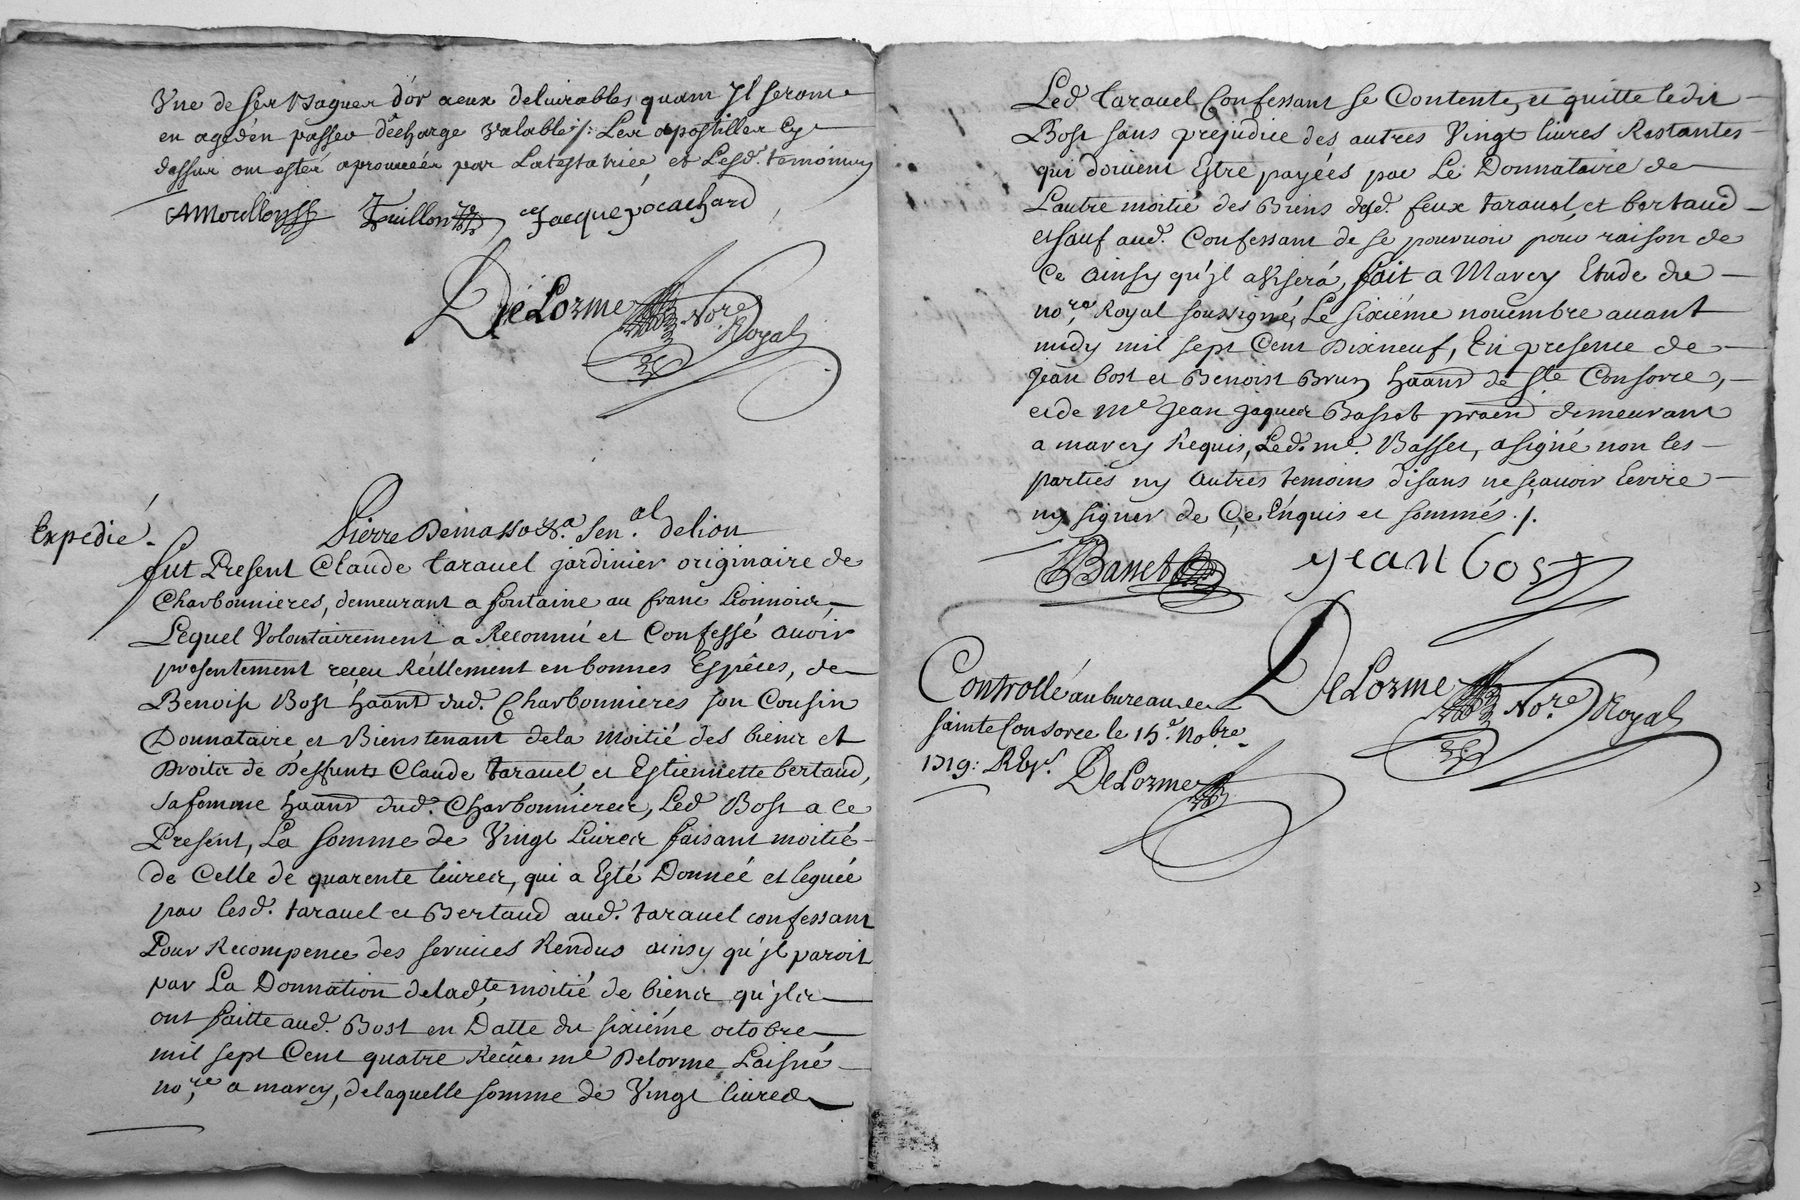 Vne de ses Bagues d'or aeux deliurables quant Jl seront
en age d'en passer décharge valable /: Les apostilles Cy
dessus ont estéé aprouuéés par Latestatrice, et Lesd. temoins
AMoulbon Touillon Jacque pocachard
DeLorme No.re Royal
Expedié.
Pierre Demasso &.a Sen.al de lion
fut Present Claude tarauel jardinier originaire de
Charbonnieres, demeurant a fontaine au franc Lionnois,
Lequel Volontairement a Reconnû et Confessé auoir
presentement reçeu Réellement en bonnes Espêces, de
Benoist Bost haânt dud. Charbonnieres son Cousin
Donnataire et Bienstenant dela Moitié des biens et
Droits de Deffunts Claude tarauel et Estiennette bertaud,
sa femme haânts dud. Charbonnieres, Led Bost a ce
Present, La somme de Vingt Liures faisant moitié
de Celle de quarente liures, qui a Esté Donnéé et leguéé
par lesd. tarauel et Bertaud aud. tarauel confessant
Pour Recompence des seruices Rendus ainsy qu'jl paroit
par La Donnation delad.te moitié de biens qu'jls
ont faitte aud. Bost en Datte du sixiéme octobre
mil sept Cent quatre Recûe me Delorme Laisné
no.re a marcy, delaquelle somme de Vingt liures
Led. tarauel Confessant se Contente, et quitte ledit
Bost sans prejudice des autres Vingt liures Restantes
qui doiuent Estre payéés par Le Donnataire de
Lautre moitié des Biens desd. feux tarauel, et bertaud
et sauf aud. Confessant de se pouruoir pour raison de
Ce ainsy qu'jl avisera, fait a Marcy Etude du
no.re Royal soussigné, Le sixiéme nouembre auant
midy mil sept Cent Dixneuf, En presence de
Jean bost et Benoist Brun haânts de S.te Consorce,
et de Me Jean Jaques Basset praen demeurant
a marcy Requis, Led. me. Basset, a signé non les
parties ny autres temoins disans ne sçauoir Ecrire
ny signer de Ce Enquis et sommés ./.
Basset jean bost
DeLorme No.re Royal
Controllé au bureau de
sainte Consorce le 15.e No.bre
1719: DeLorme